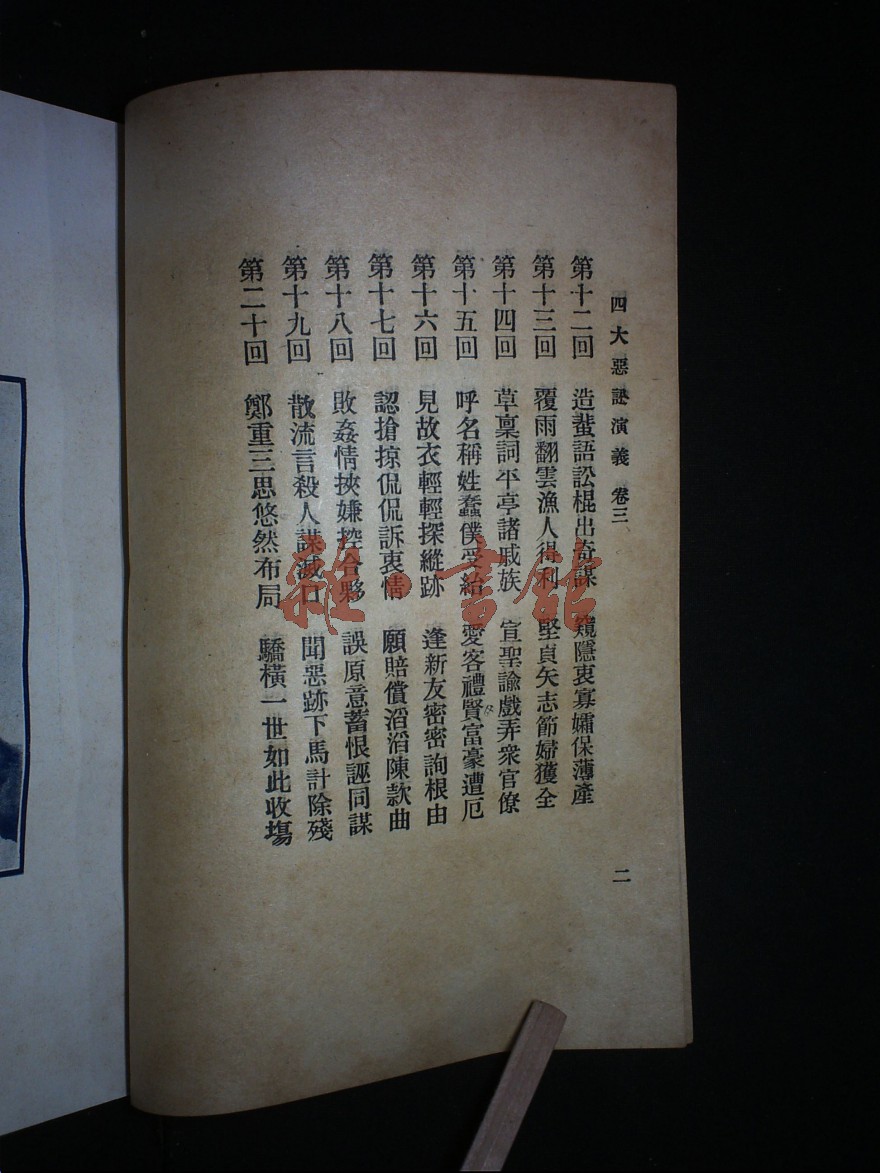 四大惡訟演義 卷三
二
第十二回 造蜚語訟棍出奇謀 窺隱衷寡孀保薄產
第十三回 覆雨翻雲漁人得利 堅貞矢志節婦獲全
第十四回 草稟詞平亭諸戚族 宣聖諭戲弄衆官僚
第十五回 呼名稱姓蠢僕受紿 愛客禮賢富豪遭厄
第十六回 見故衣輕輕探縱跡 逢新友密密詢根由
第十七回 認搶掠侃侃訴衷情 願賠償滔滔陳款曲
第十八回 敗姦情挾嫌控合夥 誤原意蓄恨誣同謀
第十九回 散流言殺人謀滅口 聞惡跡下馬計除殘
第二十回 鄭重三思悠然布局 驕橫一世如此收塲
雜·書館